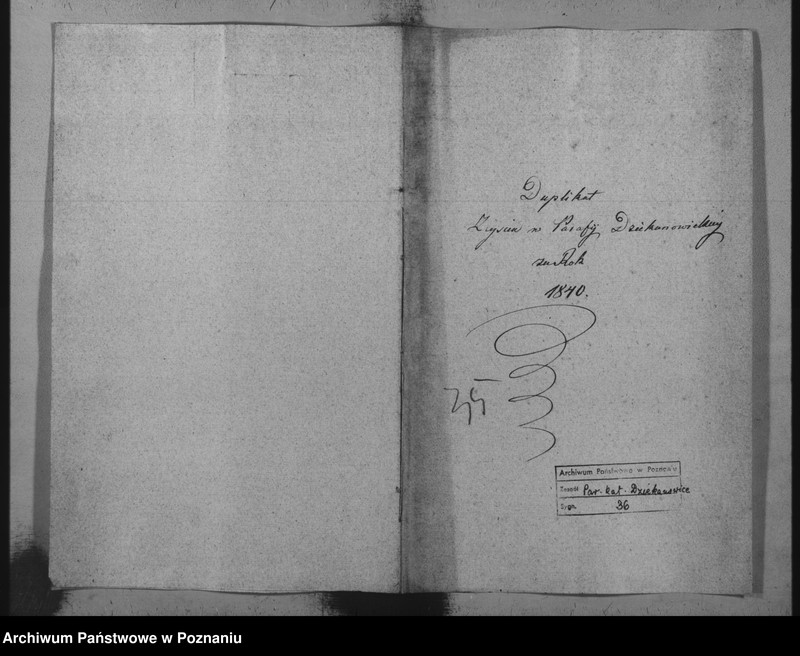 Duplikat
Zeyscia w Parafij Dziekanowickiy
za Rok
1840.
Archiwum Państwowe w Poznaniu
Zespół Par. kat. Dziekanowice
Sygn. 36
Archiwum Państwowe w Poznaniu